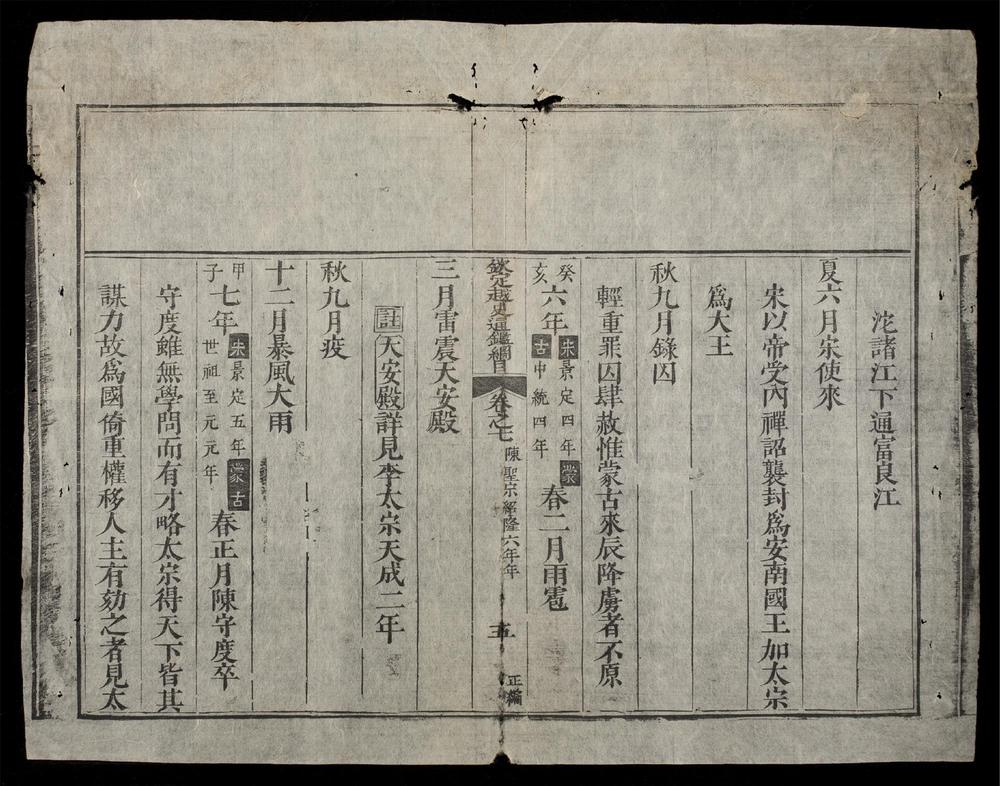 沱諸江下逼富良江
夏六月宋使來
宋以帝受內禪詔襲封爲安南國王加太宗
爲大王
秋九月錄囚
輕重罪囚肆赦惟蒙古來辰降虜者不原
癸亥六年宋景定四年蒙古中統四年春二月雨雹
欽定越史通鑑綱目卷之七陳聖宗紹隆六年年五正編
三月雷震天安殿
註天安殿詳見李太宗天成二年
秋九月疫
十二月暴風大雨
甲子七年宋景定五年蒙古世祖至元元年春正月陳守度卒
守度雖無學問而有才略太宗得天下皆其
謀力故爲國倚重權移人主有劾之者見太